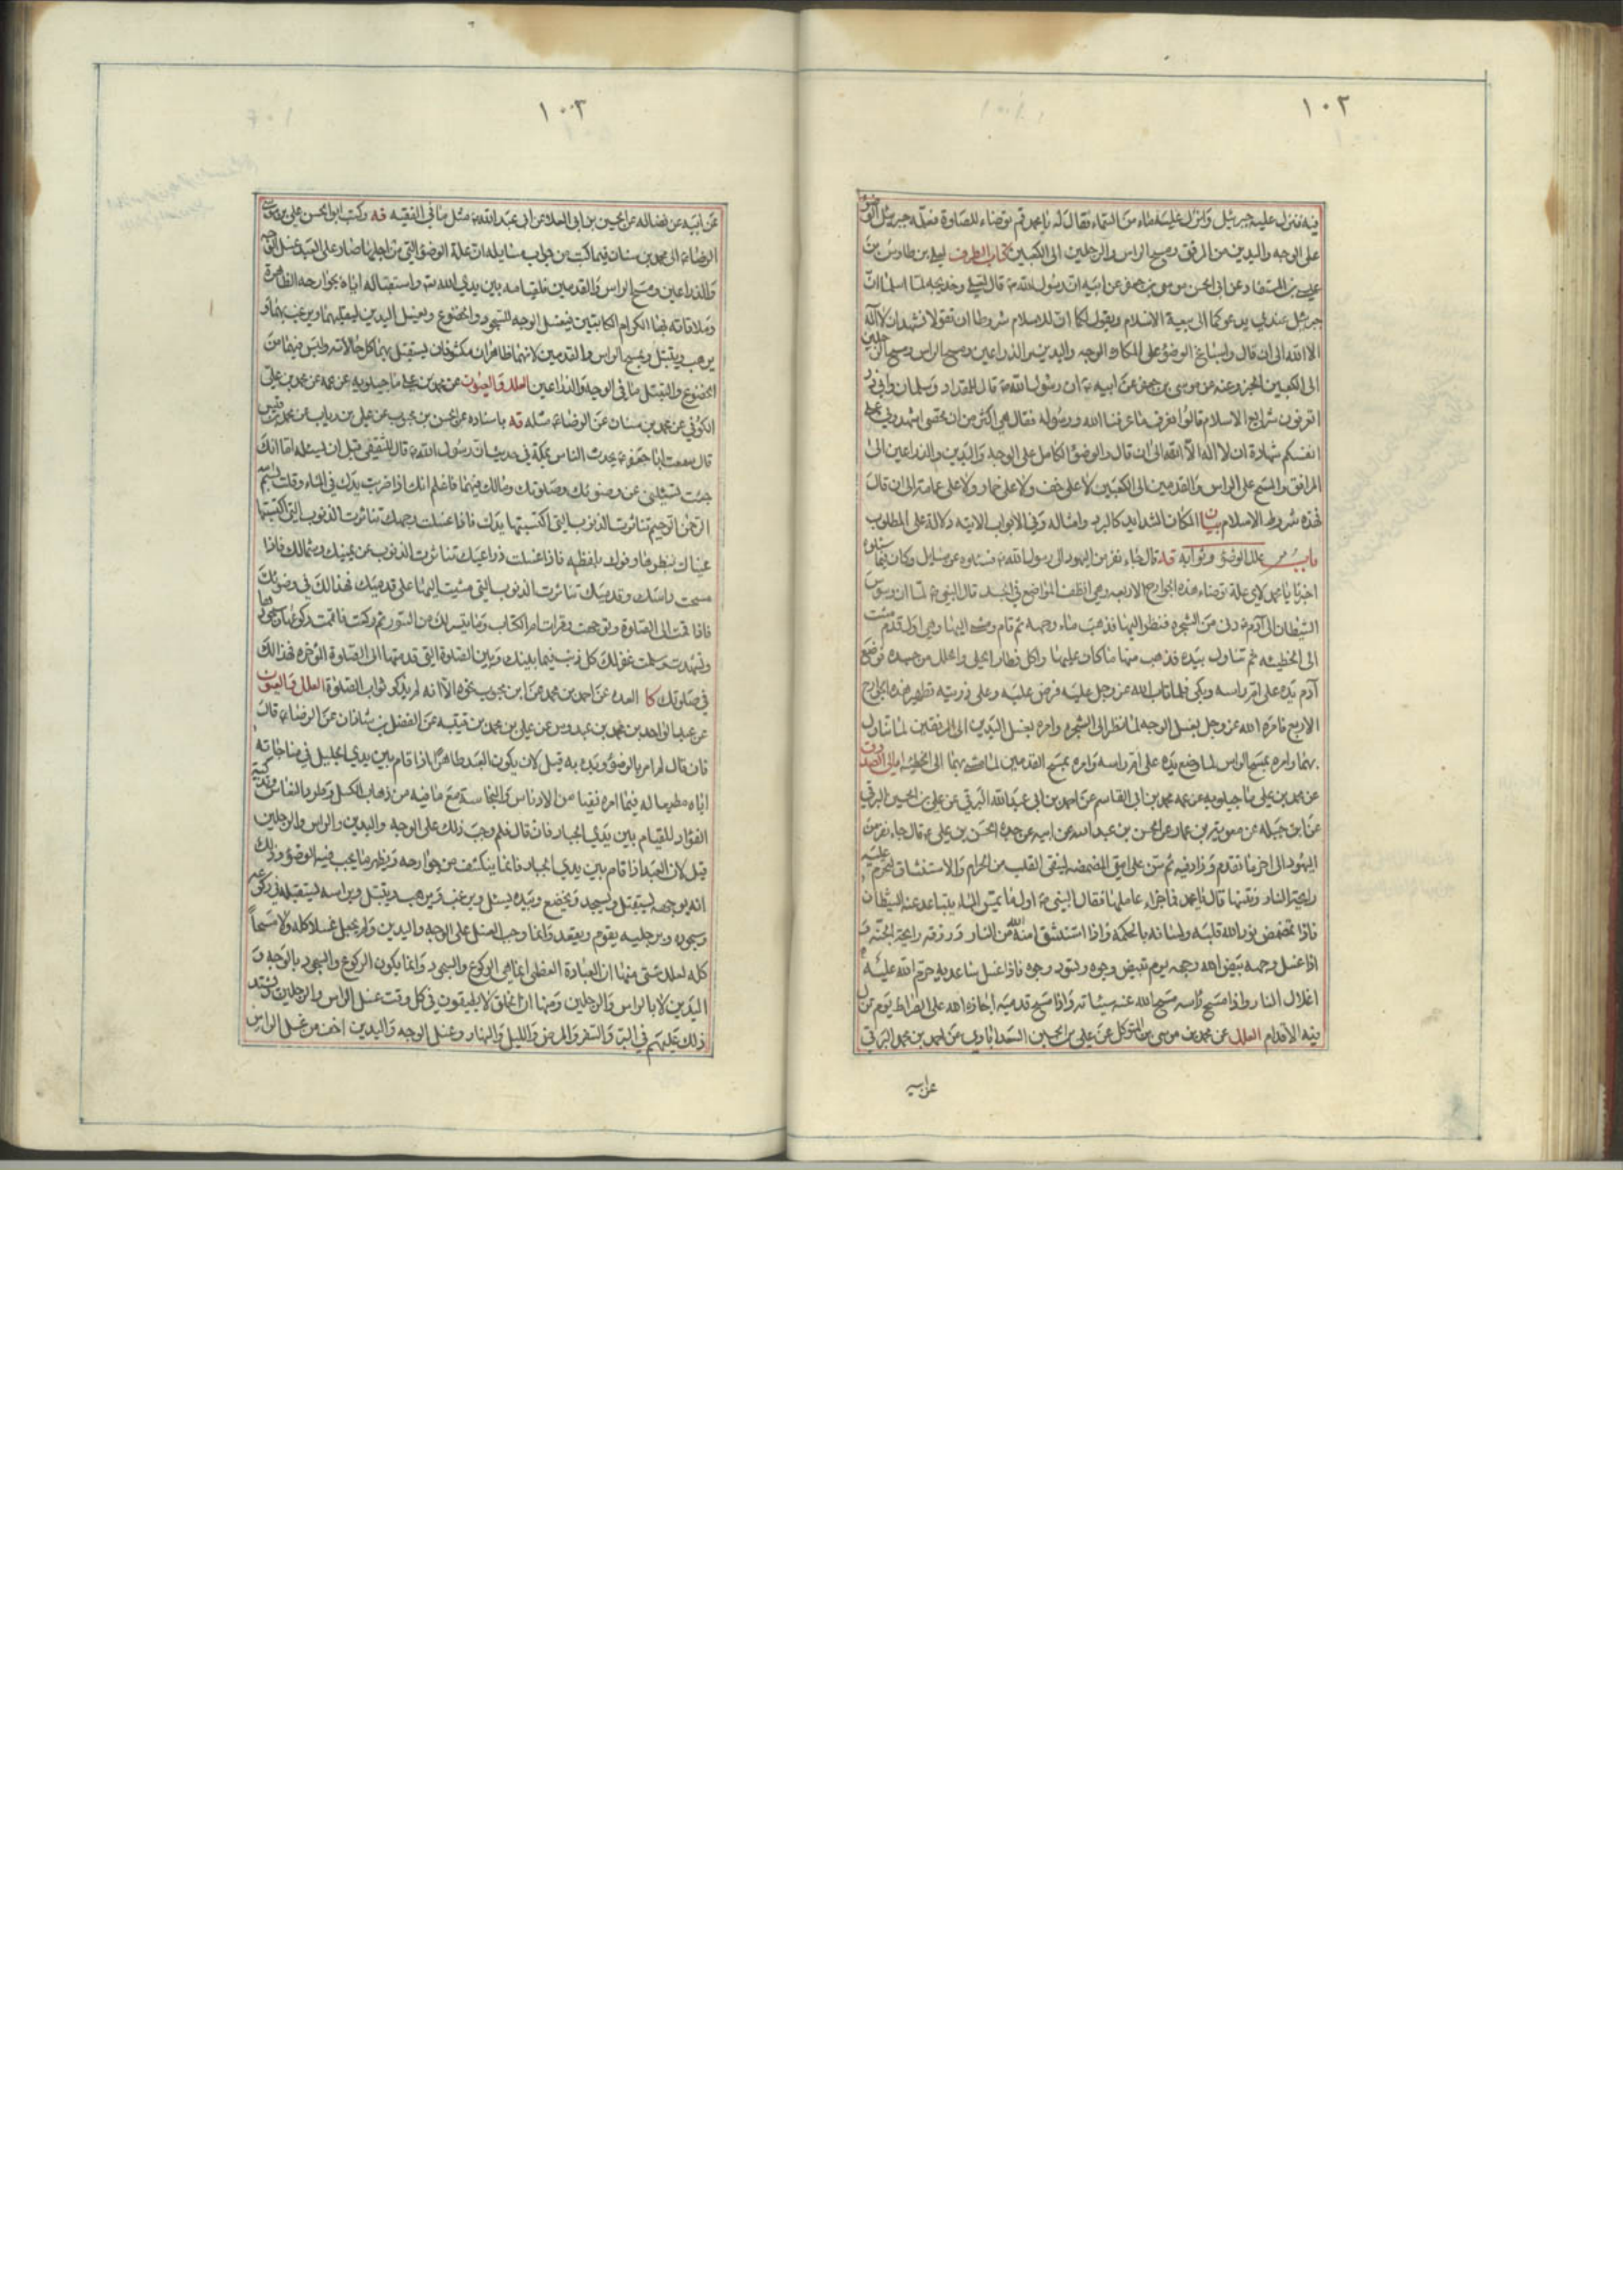 ١٠٢
فيه فنزل عليه جبرئيل وانزل عليه ماء من السماء فقال له يا محمد قم توضاء للصلوة فعلمه جبرئيل الوضوء
على الوجه واليدين من المرفق ومسح الراس والرجلين الى الكعبين كتاب الطرف لعلي بن طاوس عن
عيسى بن المستفاد عن ابى الحسن موسى بن جعفر عن ابيه ان رسول الله ص قال لعلي وخديجة لما اسلما ان
جبرئيل عندي يدعوكما الى بيعة الاسلام ويقول لكما ان للاسلام شروطا ان تقولا نشهد ان لا اله
الا الله الى ان قال واسباغ الوضوء على المكاره الوجه واليدين والذراعين ومسح الراس ومسح الرجلين
الى الكعبين الخبر وعنه عن موسى بن جعفر عن ابيه ان رسول الله ص قال للمقداد وسلمان وابي ذر
اتعرفون شرايع الاسلام قالوا نعرف ما عرفنا الله ورسوله فقال هي اكثر من ان تحصى اشهدوني على
انفسكم شهادة ان لا اله الا الله الى ان قال والوضوء الكامل على الوجه واليدين والذراعين الى
المرافق والمسح على الراس والقدمين الى الكعبين لا على خف ولا على خمار ولا على عمامة الى ان قال
فهذه شروط الاسلام بيان المكاره الشدايد كالبرد وامثاله وفي الابواب الاتية دلالة على المطلوب
باب علل الوضوء وثوابه قه قال جاء نفر من اليهود الى رسول الله ص فسئلوه عن مسايل وكان فيما سئلوه
اخبرنا يا محمد لاي علة توضاء هذه الجوارح الاربعة وهي انظف المواضع في الجسد قال النبي ص لما ان وسوس
الشيطان الى آدم ع دنى من الشجرة فنظر اليها فذهب ماء وجهه ثم قام ومشى اليها وهي اول قدم مشت
الى الخطيئة ثم تناول بيده منها ما كان عليها واكل فطار الحلي والحلل من جسده فوضع
آدم يده على ام راسه وبكى فلما تاب الله عز وجل عليه فرض عليه وعلى ذريته تطهير هذه الجوارح
الاربع فامره الله عز وجل بغسل الوجه لما نظر الى الشجرة وامره بغسل اليدين الى المرفقين لما تناول
بهما وامره بمسح الراس لما وضع يده على ام راسه وامره بمسح القدمين لما مشى بهما الى الخطيئة امالى الصدوق
عن محمد بن علي ماجيلويه عن عمه محمد بن ابى القاسم عن احمد بن ابى عبد الله البرقي عن علي بن الحسين البرقي
عن ابن جبلة عن معوية بن عمار عن الحسن بن عبد الله عن ابيه عن جده الحسن بن علي ع قال جاء نفر من
اليهود الى اخر ما تقدم وزاد فيه ثم سن على امتي المضمضة لينقي القلب من الحرام والاستنشاق لتحرم عليه
رايحة النار ونتنها قال يا محمد فما جزاء عاملها فقال النبي ص اول ما يمس الماء يتباعد عنه الشيطان
فاذا تمضمض نور الله قلبه ولسانه بالحكمة واذا استنشق امنه الله من النار ورزقه رايحة الجنة و
اذا غسل وجهه بيض الله وجهه يوم تبيض وجوه وتسود وجوه فاذا غسل ساعديه حرم الله عليه
اغلال النار واذا مسح راسه مسح الله عنه سيئاته واذا مسح قدميه اجازه الله على الصراط يوم تزل
فيه الاقدام العلل عن محمد بن موسى بن المتوكل عن علي بن الحسين السعدابادي عن احمد بن محمد البرقي
عن ابيه
١٠٣
عن ابيه عن فضالة عن الحسين بن ابى العلا عن ابى عبد الله ع مثل ما في الفقيه قه وكتب ابو الحسن علي بن موسى
الرضا ع الى محمد بن سنان فيما كتب من جواب مسايله ان علة الوضوء التي من اجلها صار على العبد غسل الوجه
والذراعين ومسح الراس والقدمين فلقيامه بين يدي الله تع واستقباله اياه بجوارحه الظاهرة
وملاقاته بها الكرام الكاتبين فيغسل الوجه للسجود والخضوع ويغسل اليدين ليقلبهما ويرغب بهما و
يرهب ويتبتل ويمسح الراس والقدمين لانهما ظاهران مكشوفان يستقبل بهما كل حالاته وليس فيهما من
الخضوع والتبتل ما في الوجه والذراعين العلل والعيون عن محمد بن علي ماجيلويه عن عمه عن محمد بن علي
الكوفي عن محمد بن سنان عن الرضا ع مثله قه باسناده عن الحسن بن محبوب عن علي بن رياب عن محمد بن قيس
قال سمعت ابا جعفر ع يحدث الناس بمكة في حديث ان رسول الله ص قال للثقفي قبل ان يسئله اما انك
جئت تسئلني عن وضوئك وصلوتك ومالك فيهما فاعلم انك اذا ضربت يدك في الماء وقلت بسم الله
الرحمن الرحيم تناثرت الذنوب التي اكتسبتها يداك فاذا غسلت وجهك تناثرت الذنوب التي اكتسبتها
عيناك بنظرهما وفوك بلفظه فاذا غسلت ذراعيك تناثرت الذنوب عن يمينك وشمالك فاذا
مسحت راسك وقدميك تناثرت الذنوب التي مشيت اليها على قدميك فهذا لك في وضوئك
فاذا قمت الى الصلوة وتوجهت وقرات ام الكتاب وما تيسر لك من السور ثم ركعت فاتممت ركوعها وسجودها
وتشهدت وسلمت غفر لك كل ذنب فيما بينك وبين الصلوة التي قدمتها الى الصلوة المؤخرة فهذا لك
في صلوتك كا العدة عن احمد بن محمد عن ابن محبوب نحوه الا انه لم يذكر ثواب الصلوة العلل والعيون
عن عبد الواحد بن محمد بن عبدوس عن علي بن محمد بن قتيبة عن الفضل بن شاذان عن الرضا ع قال
فان قال لم امر بالوضوء وبدء به قيل لان يكون العبد طاهرا اذا قام بين يدي الجليل في مناجاته
اياه مطيعا له فيما امره نقيا من الادناس والنجاسة مع ما فيه من ذهاب الكسل وطرد النعاس وتزكية
الفؤاد للقيام بين يدي الجبار فان قال فلم وجب ذلك على الوجه واليدين والراس والرجلين
قيل لان العبد اذا قام بين يدي الجبار فانما ينكشف من جوارحه ويظهر ما يجب فيه الوضوء وذلك
انه بوجهه يستقبل ويسجد ويخضع وبيده يسئل ويرغب ويرهب ويتبتل وبراسه يستقبله في ركوعه
وسجوده وبرجليه يقوم ويقعد وانما وجب الغسل على الوجه واليدين ولم يجعل غسلا كله ولا مسحا
كله لعلل شتى منها ان العبادة العظمى انما هي الركوع والسجود وانما يكون الركوع والسجود بالوجه و
اليدين لا بالراس والرجلين ومنها ان الخلق لا يطيقون في كل وقت غسل الراس والرجلين يشتد
ذلك عليهم في البرد والسفر والمرض والليل والنهار وغسل الوجه واليدين اخف من غسل الراس